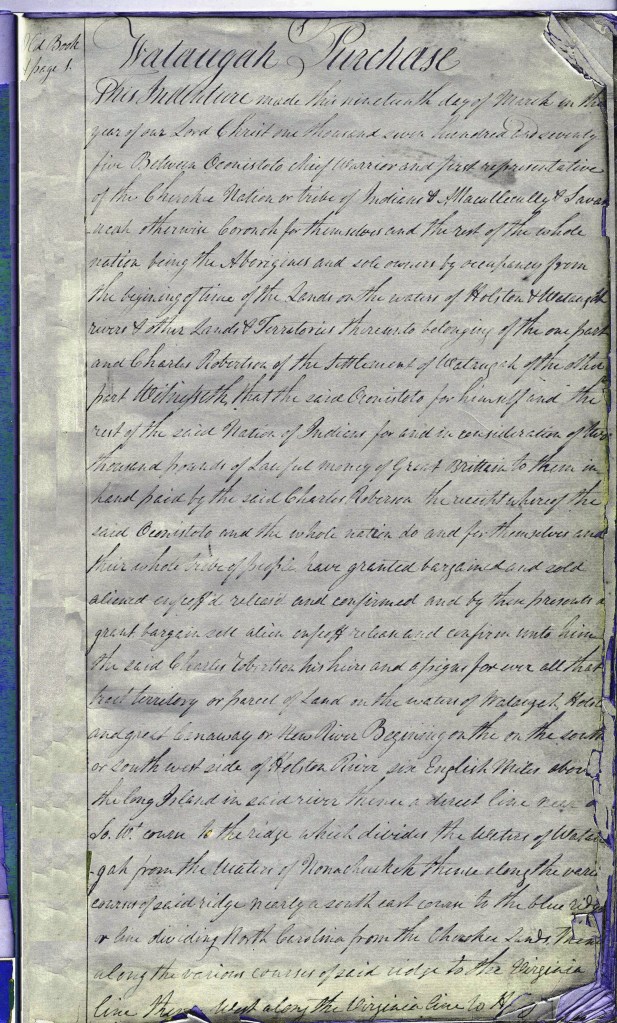 Old Book
page 1.
Wataugah Purchase
This Indenture made this nineteenth day of March in the
year of our Lord Christ one thousand seven hundred and seventy
five Between Oconistoto chief Warrior and first representative
of the Cherokee Nation or tribe of Indians & Attacullecully & Savan
-ucah otherwise Coronoh for themselves and the rest of the whole
nation being the Aborigines and sole owners by occupancy from
the begining of time of the Lands on the waters of Holston & Wataugah
rivers & other Lands & Territories thereunto belonging of the one part
and Charles Robertson of the Settlement of Wataugah of the other
part Witnesseth that the said Oconistoto for himself and the
rest of the said Nation of Indians for and in consideration of two
thousand pounds of Lawful money of Great Brittain to them in
hand paid by the said Charles Roberson the receipt whereof the
said Oconistoto and the whole nation do and for themselves and
their whole tribe of people have granted bargained and sold
aliened enfeoff'd releas'd and confirmed and by these presents do
grant bargain sell alien enfeoff release and confirm unto him
the said Charles Robertson his heirs and assigns for ever all that
tract territory or parcel of Land on the waters of Wataugah, Holston
and great Canaway or New River Begining on the on the south
or south west side of Holston River six English Miles above
the long Island in said river thence a direct line near a
So. Wt. course to the ridge which divides the Waters of Watau
-gah from the Waters of Nonachuckeh thence along the various
courses of said ridge nearly a south east course to the blue ridge
or line dividing North Carolina from the Cherokee Lands, thence
along the various courses of said ridge to the Virginia
line thence West along the Virginia line to